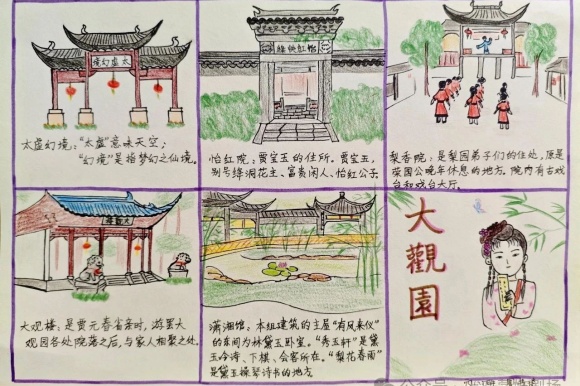 太虚幻境
太虚幻境:“太虚”意味天空;
“幻境”是指梦幻之仙境。
怡红院:贾宝玉的住所。贾宝玉,
别号绛洞花主、富贵闲人、怡红公子
梨香院:是梨园弟子们的住处,原是
荣国公晚年休息的地方。院内有古戏
台和戏台大厅。
大观楼:是贾元春省亲时,游罢大
观园各处院落之后,与家人相聚之处。
潇湘馆:本组建筑的主屋“有凤来仪”
的东间为林黛玉卧室。“秀玉轩”是黛
玉吟诗、下棋、会客所在。“梨花春雨”
是黛玉操琴诗书的地方
大觀園